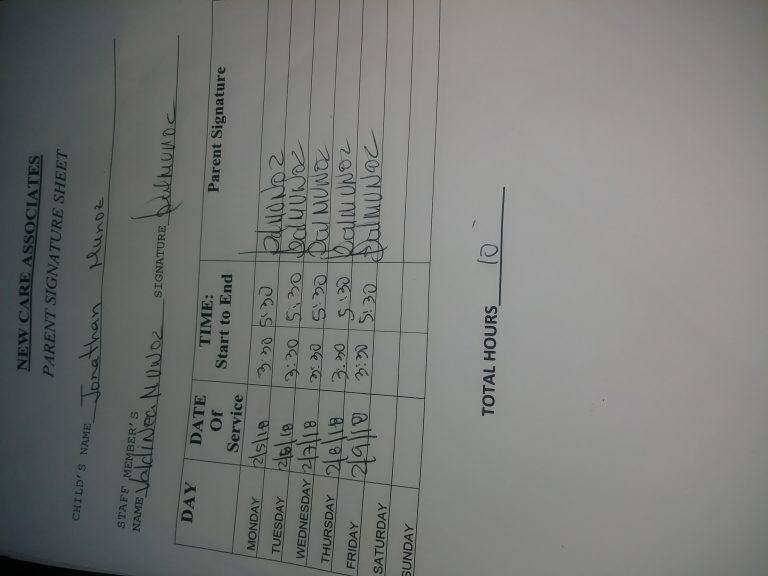 NEW CARE ASSOCIATES
PARENT SIGNATURE SHEET
CHILD'S NAME Jonathan Munoz
STAFF MEMBER'S
NAME Valdinea MUNOZ SIGNATURE DalMUNOZ
DAY DATE Of Service TIME: Start to End Parent Signature
MONDAY 2/5/18 3:30 5:30 DalMUNOZ
TUESDAY 2/6/18 3:30 5:30 DalMUNOZ
WEDNESDAY 2/7/18 3:30 5:30 DalMUNOZ
THURSDAY 2/8/18 3:30 5:30 DalMUNOZ
FRIDAY 2/9/18 3:30 5:30 DalMUNOZ
SATURDAY
SUNDAY
TOTAL HOURS 10